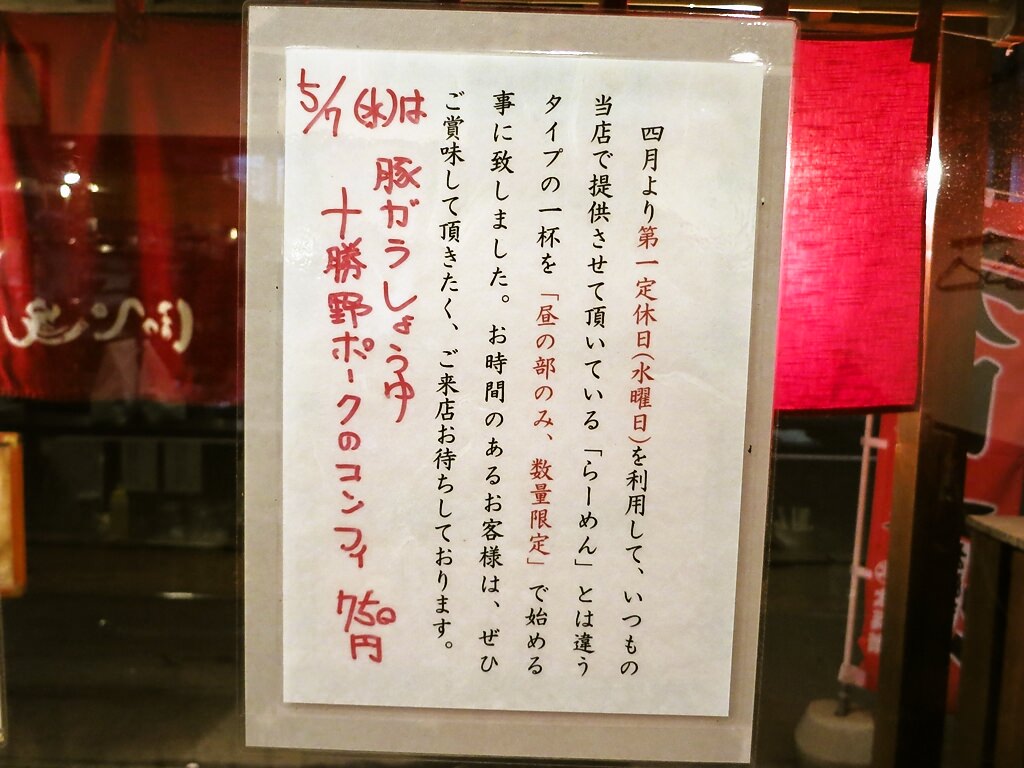 四月より第一定休日(水曜日)を利用して、いつもの
当店で提供させて頂いている「らーめん」とは違う
タイプの一杯を「昼の部のみ、数量限定」で始める
事に致しました。お時間のあるお客様は、ぜひ
ご賞味して頂きたく、ご来店お待ちしております。
5/7(水)は 豚ガラしょうゆ
十勝野ポークのコンフィ 750円